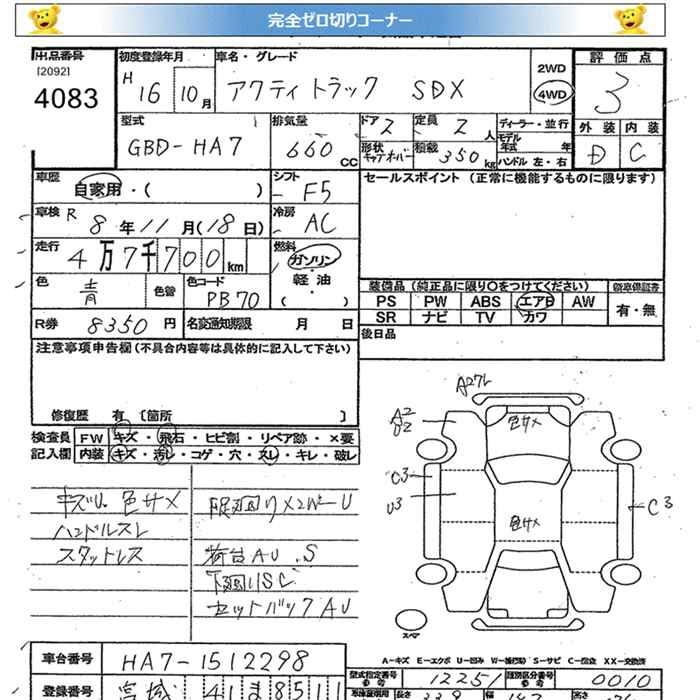 完全ゼロ切りコーナー
出品番号 初度登録年月 車名・グレード 評価点
[2092]
4083 H 16 10月 アクティトラック SDX 2WD 4WD 3
型式 排気量 ドア 定員 ディーラー・並行 外装 内装
GBD-HA7 660 CC 2 2人 モデル年式 年 D C
形状 キャブオーバー 積載 350kg ハンドル 左・右
車歴 自家用・( ) シフト F5 セールスポイント (正常に機能するものに限ります)
車検 R 8年11月(18日) 冷房 AC
走行 4万7千700km 燃料 ガソリン・軽油・( )
色 青 色替 色コード PB70 装備品 (純正品に限り○をつけてください) 新車保証書
PS PW ABS エアB AW 有・無
SR ナビ TV カワ
R券 8350円 名変通知期限 月 日 後日品
注意事項申告欄 (不具合内容等は具体的に記入して下さい)
修復歴 有 〔箇所 〕
検査員 FW キズ・飛石・ヒビ割・リペア跡・×要
記入欄 内装 キズ・汚レ・コゲ・穴・スレ・キレ・破レ
キズU 色サメ
ハンドルスレ
スタットレス
足廻り
荷台AU.S
下廻りSC
セットバックAU
A2
U2
C3
U3
色サメ
色サメ
C3
スペア
A-キズ E-エクボ U-凹み S-サビ C-腐食 XX-交換済
車台番号 HA7-1512298 型式指定番号 12251 類別区分番号 0010
登録番号 宮城 41 ま 8511 長さ 幅 高さ